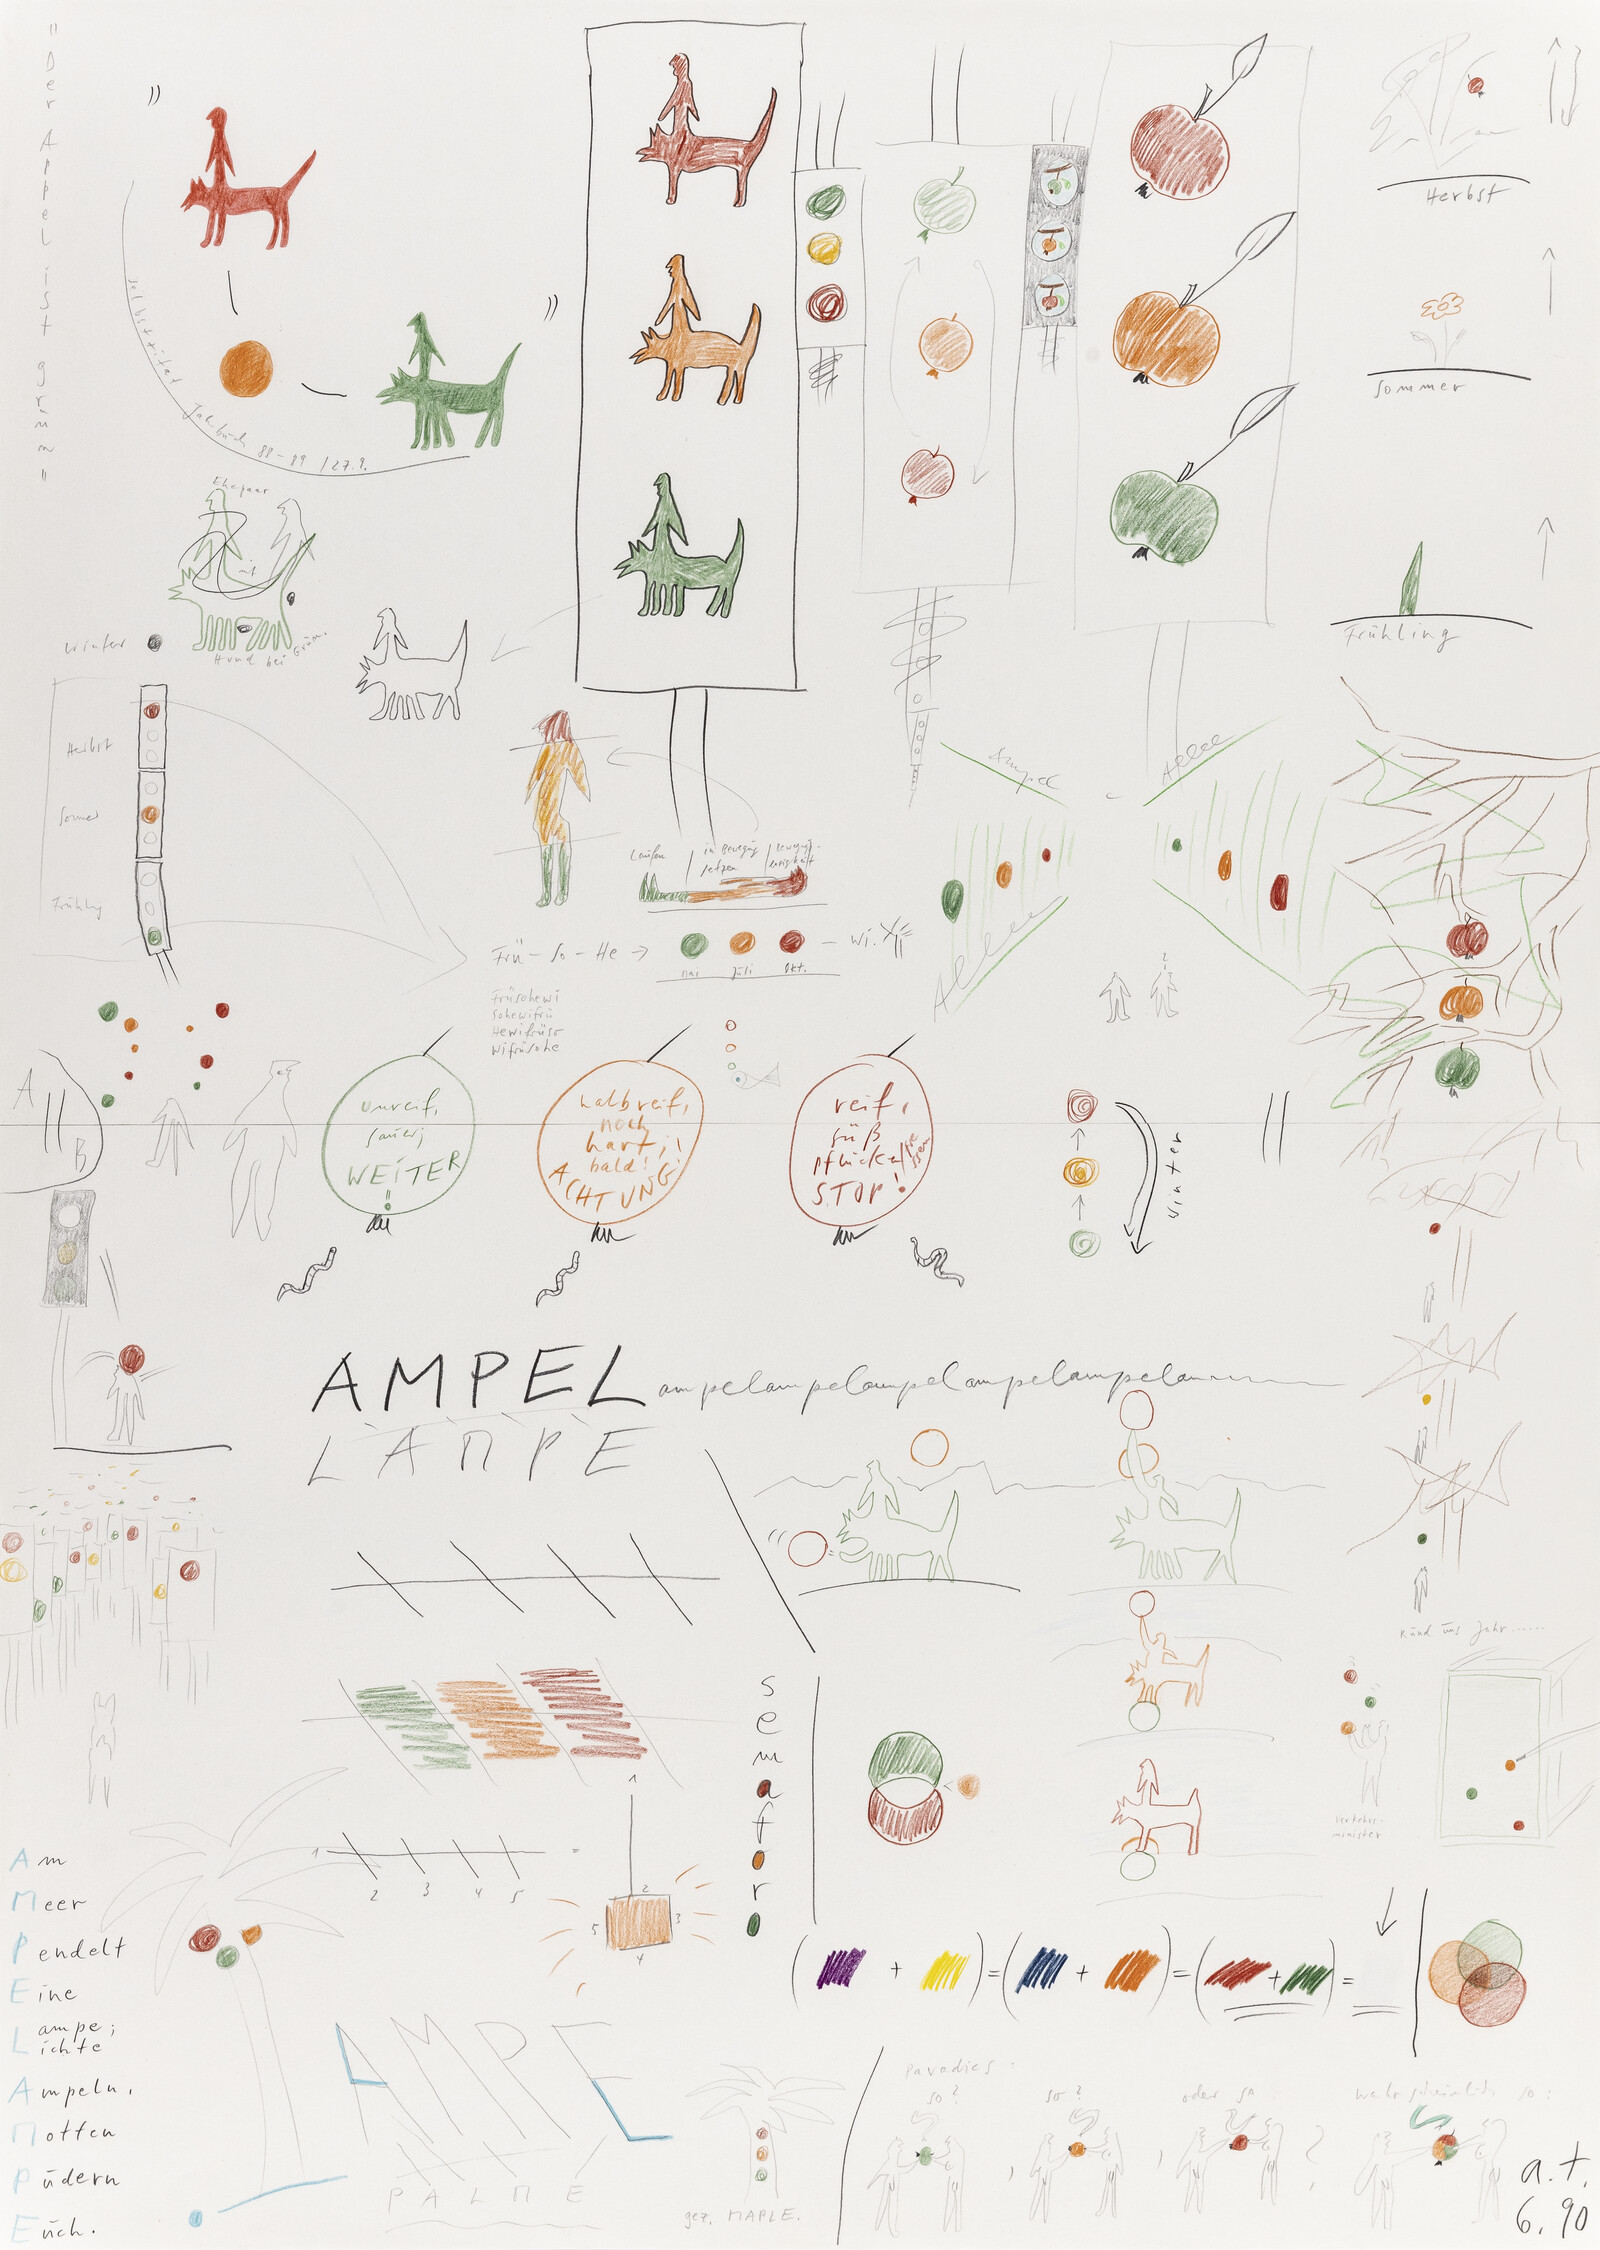 "Der Appel ist grün"
Jahrbuch 88-89 / 27.9.
Herbst
Sommer
Frühling
Ehepaar
mit
Hund bei Grün.
Winter
Herbst
Sommer
Frühling
Ampel
Allee
Allee
Laufen
in Bewegung
setzen
Frü - So - He → — Wi.
Mai
Juli
Okt.
Früsohewi
Sohewifrü
Hewifrüso
Wifrüsohe
A
B
unreif,
sauer;
WEITER
!!
halbreif,
noch
hart;!
bald!
ACHTUNG!
reif,
süß
pflücken/essen
STOP!
Winter
AMPEL ampelampelampelampelampelam
LAMPE
Rund ums Jahr......
semaforo
Verkehrs-
minister
1
2 3 4 5 =
1
2
5 3
4
( + ) = ( + ) = ( + ) =
Am
Meer
Pendelt
Eine
Lampe;
Lichte
Ampeln.
Motten
Pudern
Euch.
AMPEL
PALME
gez. MAPLE.
Paradies:
so?
so?
oder so
?
wahrscheinlich so:
a.t.
6.90